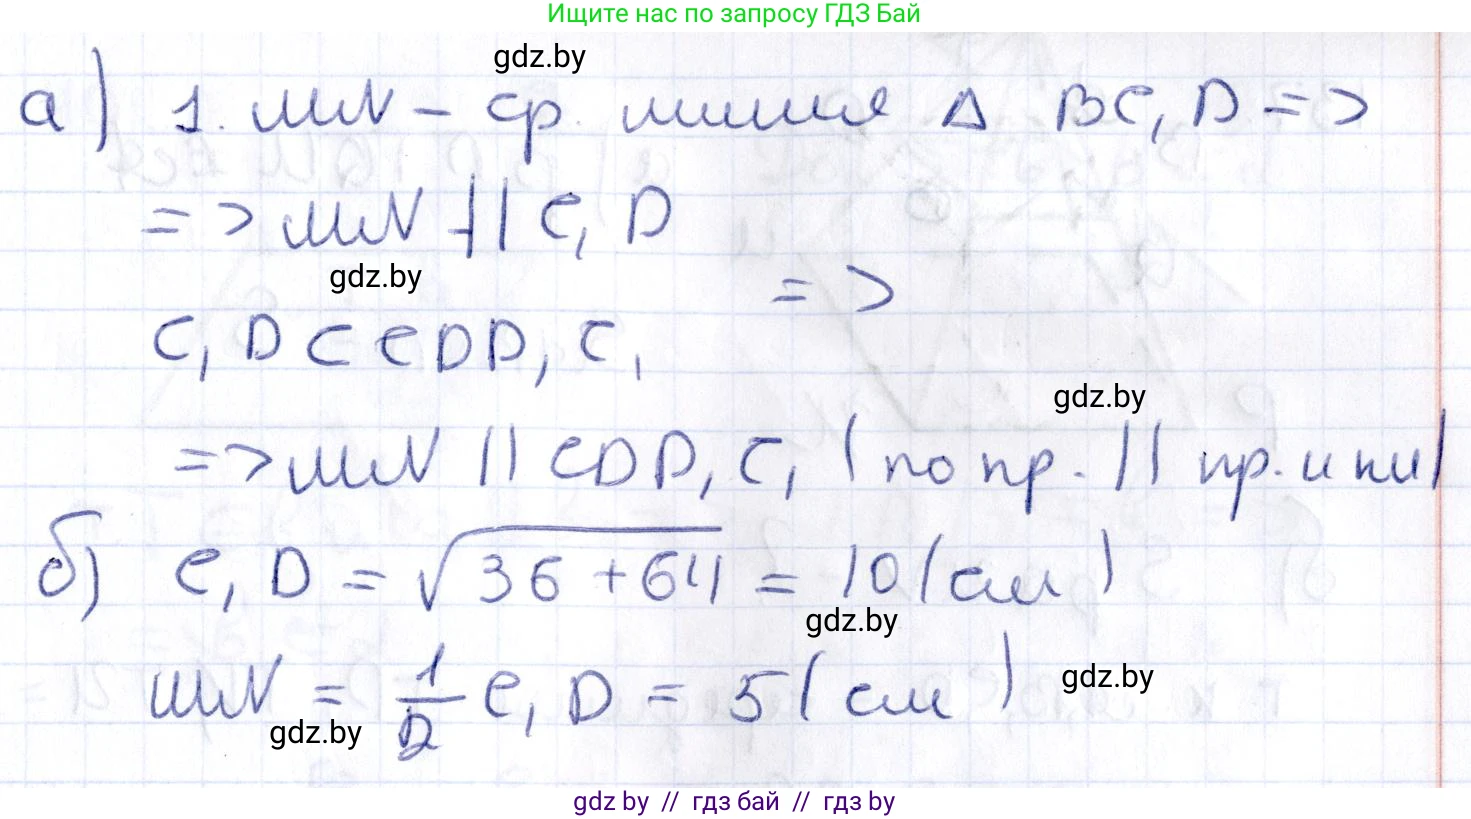 Ищите нас по запросу ГДЗ Бай
gdz.by
а) 1. MN – ср. линия Δ BC₁D =>
=> MN || C₁D
gdz.by
=>
C₁D ⊂ CDD₁C₁
gdz.by
=> MN || CDD₁C₁ (по пр. || пр. и пл)
б) C₁D = √36 + 64 = 10 (см)
gdz.by
MN = 1/2 C₁D = 5 (см)
gdz.by
gdz.by
gdz by // гдз бай // гдз by